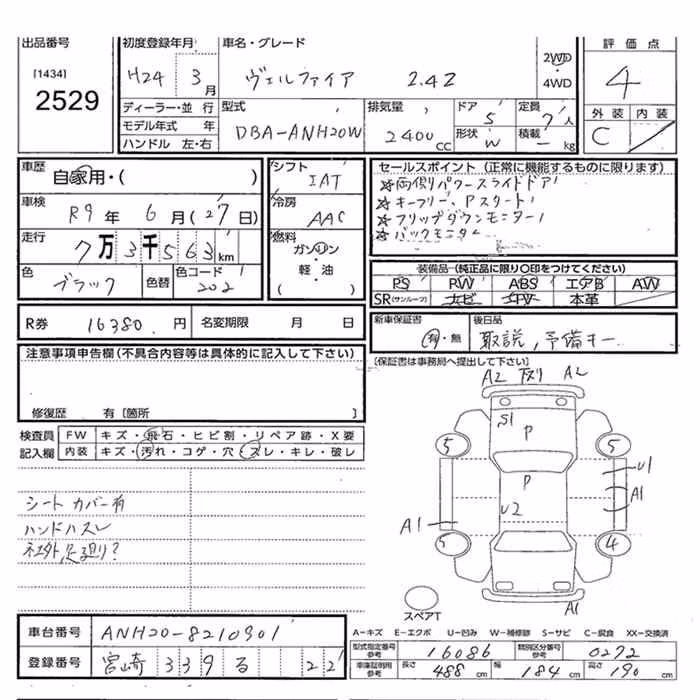 出品番号
[1434]
2529
初度登録年月 車名・グレード
H24 3月 ヴェルファイア 2.4Z
2WD・4WD
評価点
4
外装 内装
C
ディーラー・並行
モデル年式 年
ハンドル 左・右
型式 排気量 ドア 定員
DBA-ANH20W 2400CC 5 7人
形状 積載
W ー kg
車歴 自家用・( )
車検 R9年 6月(27日)
走行 7万3千563km
色 ブラック 色替 色コード 202
シフト IAT
冷房 AAC
燃料
ガソリン
・
軽・油
( )
セールスポイント(正常に機能するものに限ります)
☆両側パワースライドドア
☆キーフリー、Pスタート
☆フリップダウンモニター
☆バックモニター
装備品(純正品に限り○印をつけてください)
PS PW ABS エアB AW
SR(サンルーフ) ナビ TV 本革
R券 16380円 名変期限 月 日
新車保証書 後日品
有・無 取説,予備キー
[保証書は事務局へ提出して下さい]
注意事項申告欄(不具合内容等は具体的に記入して下さい)
修復歴 有[箇所 ]
検査員 FW キズ・飛石・ヒビ割・リペア跡・X要
記入欄 内装 キズ・汚れ・コゲ・穴・スレ・キレ・破レ
シートカバー有
ハンドルスレ
社外足廻り?
A2 下スリ A2
S1
P
5 5
P
U1
U2
A1
A1
5 4
A1
スペアT
車台番号 ANH20-8210901
登録番号 宮崎 339 る 22
A-キズ E-エクボ U-凹み W-補修跡 S-サビ C-腐食 XX-交換済
型式指定番号 参考 16086 類別区分番号 参考 0272
車庫証明用 参考 長さ 488cm 幅 184cm 高さ 190cm